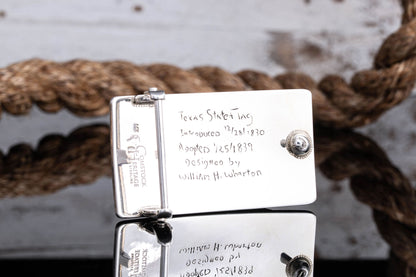 Texas State Flag
Introduced 12/28/1830
Adopted 1/25/1839
Designed by
William H. Wharton
COMSTOCK
HERITAGE